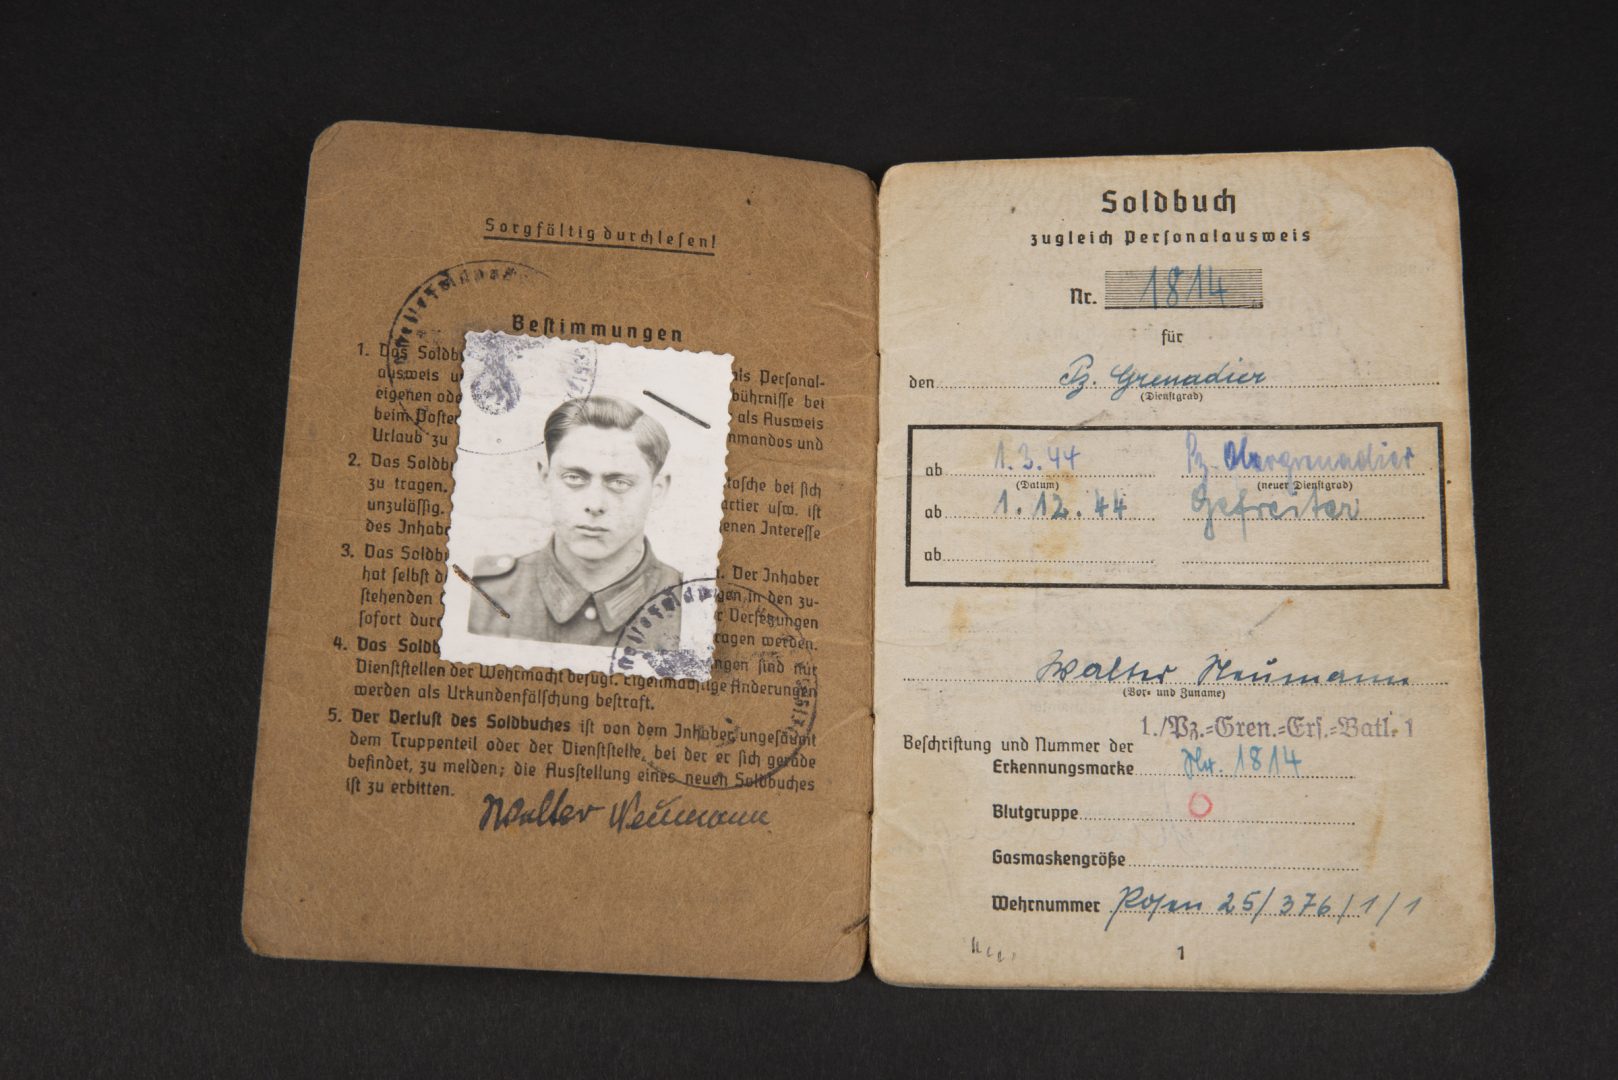 Sorgfältig durchlesen!
Bestimmungen
1. Das Soldb
als Personal-
ausweis u
bührnisse bei
eigenen ode
als Ausweis
beim Poste
mmandos und
Urlaub zu
2. Das Soldb
tasche bei sich
zu tragen.
artier usw. ist
unzulässig.
enen Interesse
des Inhabe
3. Das Soldb
. Der Inhaber
hat selbst d
gen, in den zu-
stehenden
r Versetzungen
sofort durc
ragen werden.
4. Das Soldb
ngen sind nur
Dienststellen der Wehrmacht befugt. Eigenmächtige Änderungen
werden als Urkundenfälschung bestraft.
5. Der Verlust des Soldbuches ist von dem Inhaber ungesäumt
dem Truppenteil oder der Dienststelle, bei der er sich gerade
befindet, zu melden; die Ausstellung eines neuen Soldbuches
ist zu erbitten.
Walter Neumann
Soldbuch
zugleich Personalausweis
Nr. 1814
für
den Pz. Grenadier
(Dienstgrad)
ab 1.3.44 Pz. Obergrenadier
(Datum) (neuer Dienstgrad)
ab 1.12.44 Gefreiter
ab
Walter Neumann
(Vor- und Zuname)
1./Pz.-Gren.-Ers.-Batl. 1
Beschriftung und Nummer der
Erkennungsmarke Nr. 1814
Blutgruppe O
Gasmaskengröße
Wehrnummer Posen 25/376/1/1
1